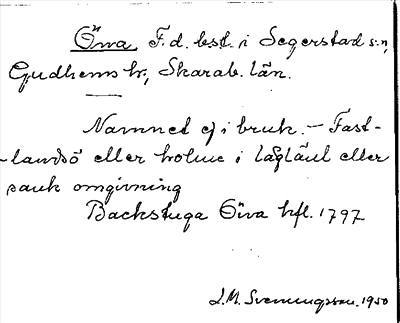 Öiva, F.d. bst. i Segerstad sn,
Gudhems hr, Skarab. län.
Namnet ej i bruk. – Fast-
landsö eller holme i låglänt eller
sank omgivning
Backstuga Öiva hfl. 1797
J.M. Svenungsson. 1950